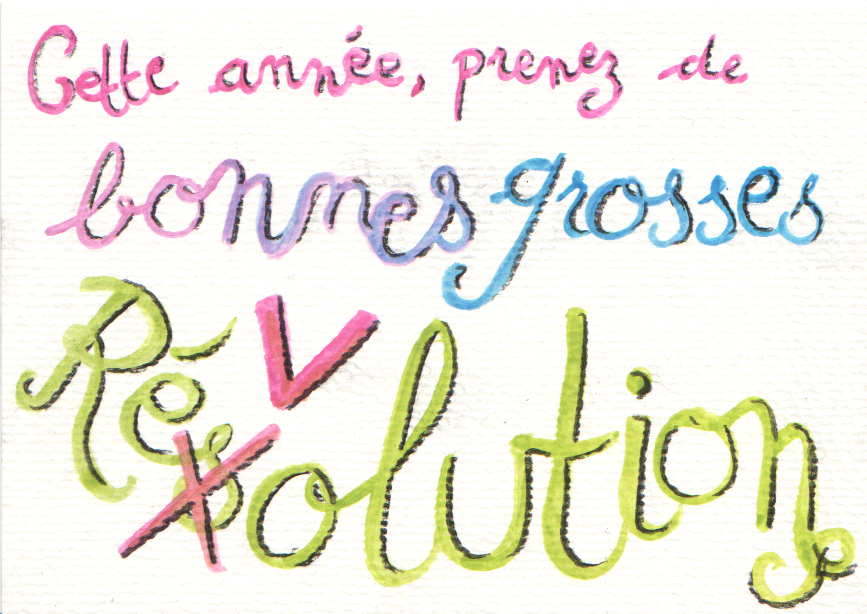 Cette année, prenez de
bonnes grosses
V
Résolutions